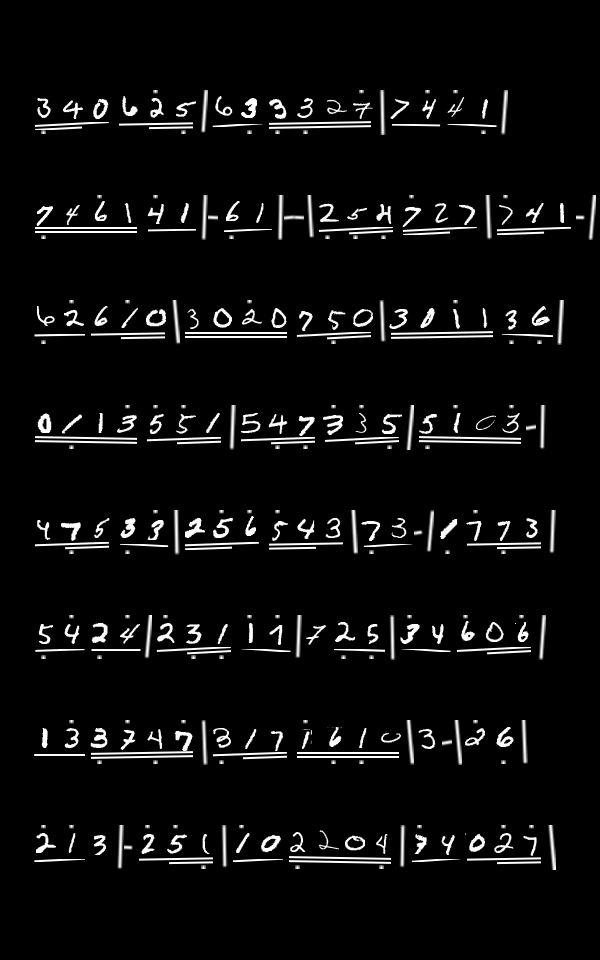 340625|633327|7441
746141|-61|-|254727|741-|
62610|3020750|301136|
0113551|547335|5103-|
47533|256543|73-|1773
5424|23117|725|34606|
133747|3171610|3-|26|
213|-251|102204|34027|